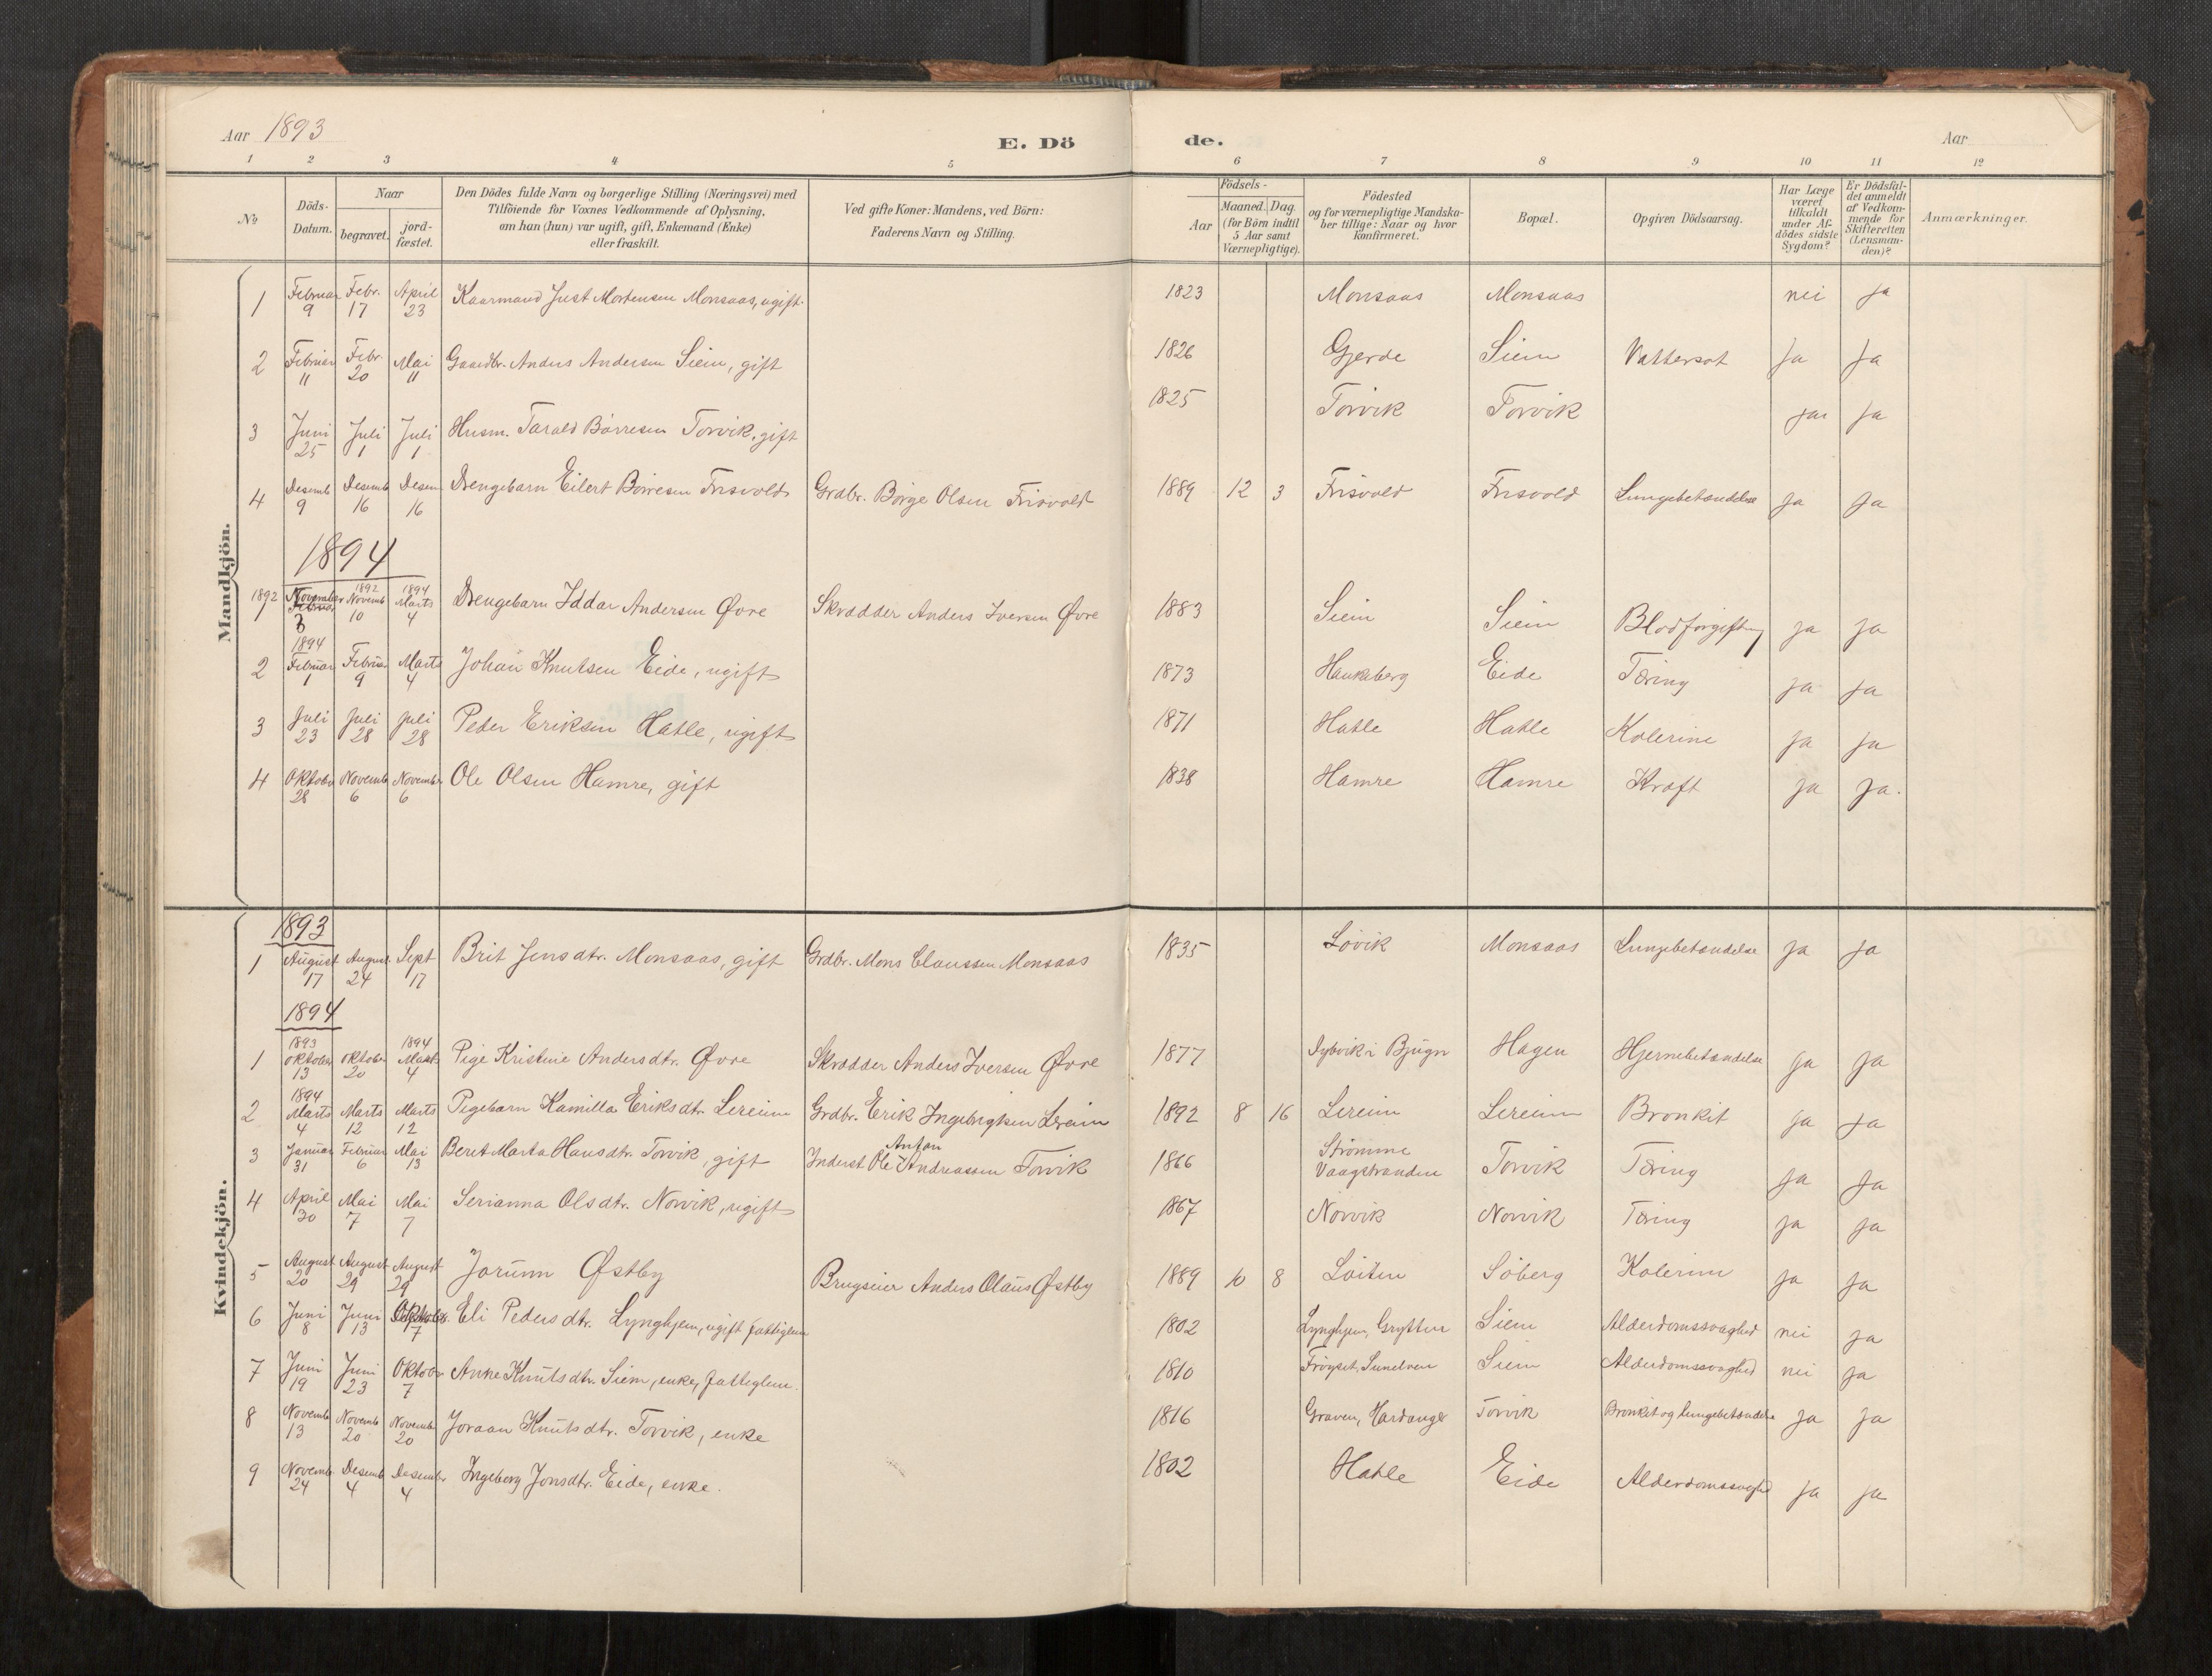 Aar 1893
E. Dö de.
Aar
1 2 3 4 5 6 7 8 9 10 11 12
No
Döds-Datum.
Naar
begravet.
jord-fæstet.
Den Dödes fulde Navn og borgerlige Stilling (Næringsvei) med
Tilföiende for Voxnes Vedkommende af Oplysning,
om han (hun) var ugift, gift, Enkemand (Enke)
eller fraskilt.
Ved gifte Koner: Mandens, ved Börn:
Faderens Navn og Stilling.
Födsels-
Aar
Maaned. Dag.
(for Börn indtil
5 Aar samt
Værnepligtige).
Födested
og for værnepligtige Mandska-
ber tillige: Naar og hvor
konfirmeret.
Bopæl.
Opgiven Dödsaarsag.
Har Læge
været
tilkaldt
under Af-
dödes sidste
Sygdom?
Er Dödsfal-
det anmeldt
af Vedkom-
mende for
Skifteretten
(Lensman-
den)?
Anmærkninger.
Mandkjön.
1 Februar 9 Febr. 17 April 23 Kaarmand Just Mortensen Monsaas, ugift. 1823 Monsaas Monsaas nei Ja
2 Februar 11 Febr. 20 Mai 11 Gaardbr. Anders Andersen Siem, gift 1826 Gjerde Siem Vattersot Ja Ja
3 Juni 25 Juli 1 Juli 1 Husm. Tarald Børresen Torvik, gift 1825 Torvik Torvik Ja
4 Desemb 9 Desemb 16 Desem 16 Drengebarn Eilert Børresen Frisvold Grdbr. Børge Olsen Frisvold 1889 12 3 Frisvold Frisvold Lungebetændelse Ja Ja
1894
1892 1 November Februar 3 1892 Novemb 10 1894 Marts 4 Drengebarn Iddar Andersen Øvre Skrædder Anders Iversen Øvre 1883 Siem Siem Blodforgiftng Ja Ja
2 1894 Februar 1 Februar 9 Marts 4 Johan Knutsen Eide, ugift 1873 Haukaberg Eide Tæring Ja Ja
3 Juli 23 Juli 28 Juli 28 Peder Eriksen Hatle, ugift 1871 Hatle Hatle Kolerine Ja Ja
4 Oktober 28 Novemb 6 Novembr 6 Ole Olsen Hamre, gift 1838 Hamre Hamre Kræft Ja Ja.
Kvindekjön.
1893
1 August 17 August 24 Sept 17 Brit Jensdtr. Monsaas, gift Grdbr. Mons Claussen Monsaas 1835 Løvik Monsaas Lungebetændelse Ja Ja
1894
1 1893 Oktober 13 Oktober 20 1894 Marts 4 Pige Kristine Andersdtr. Øvre Skrædder Anders Iversen Øvre 1877 Dybvik i Bjugn Hagen Hjernebetændelse Ja Ja
2 1894 Marts 4 Marts 12 Marts 12 Pigebarn Kamilla Eriksdtr. Lereim Grdbr. Erik Ingebrigtsen Lereim 1892 8 16 Lereim Lereim Bronkit Ja Ja
3 Januar 31 Februar 6 Mai 13 Berit Marta Hansdtr. Torvik, gift Inderst Ole Anton Andreassen Torvik 1866 Strømme Vaagstranden Torvik Tæring Ja Ja
4 April 30 Mai 7 Mai 7 Serianna Olsdtr. Norvik, ugift 1867 Norvik Norvik Tæring Ja Ja
5 August 20 August 29 August 29 Jorunn Østby Brugseier Anders Olaus Østby 1889 10 8 Løiten Søberg Kolerine Ja Ja
6 Juni 8 Juni 13 Oktober 7 Eli Pedersdtr. Lynghjem, ugift fattiglem 1802 Lynghjem, Grytten Siem Alderdomssvaghed nei Ja
7 Juni 19 Juni 23 Oktober 7 Anne Knutsdtr. Siem, enke, fattiglem. 1810 Frøyset, Sunelven Siem Alderdomssvaghed nei Ja
8 Novemb 13 Novemb 20 Novemb 20 Joraan Knutsdtr. Torvik, enke 1816 Graven, Hardanger Torvik Bronkit og Lungebetændelse Ja Ja
9 Novemb. 24 Desemb 4 Desember 4 Ingeborg Jonsdtr. Eide, enke. 1802 Hatle Eide Alderdomssvaghed Ja Ja